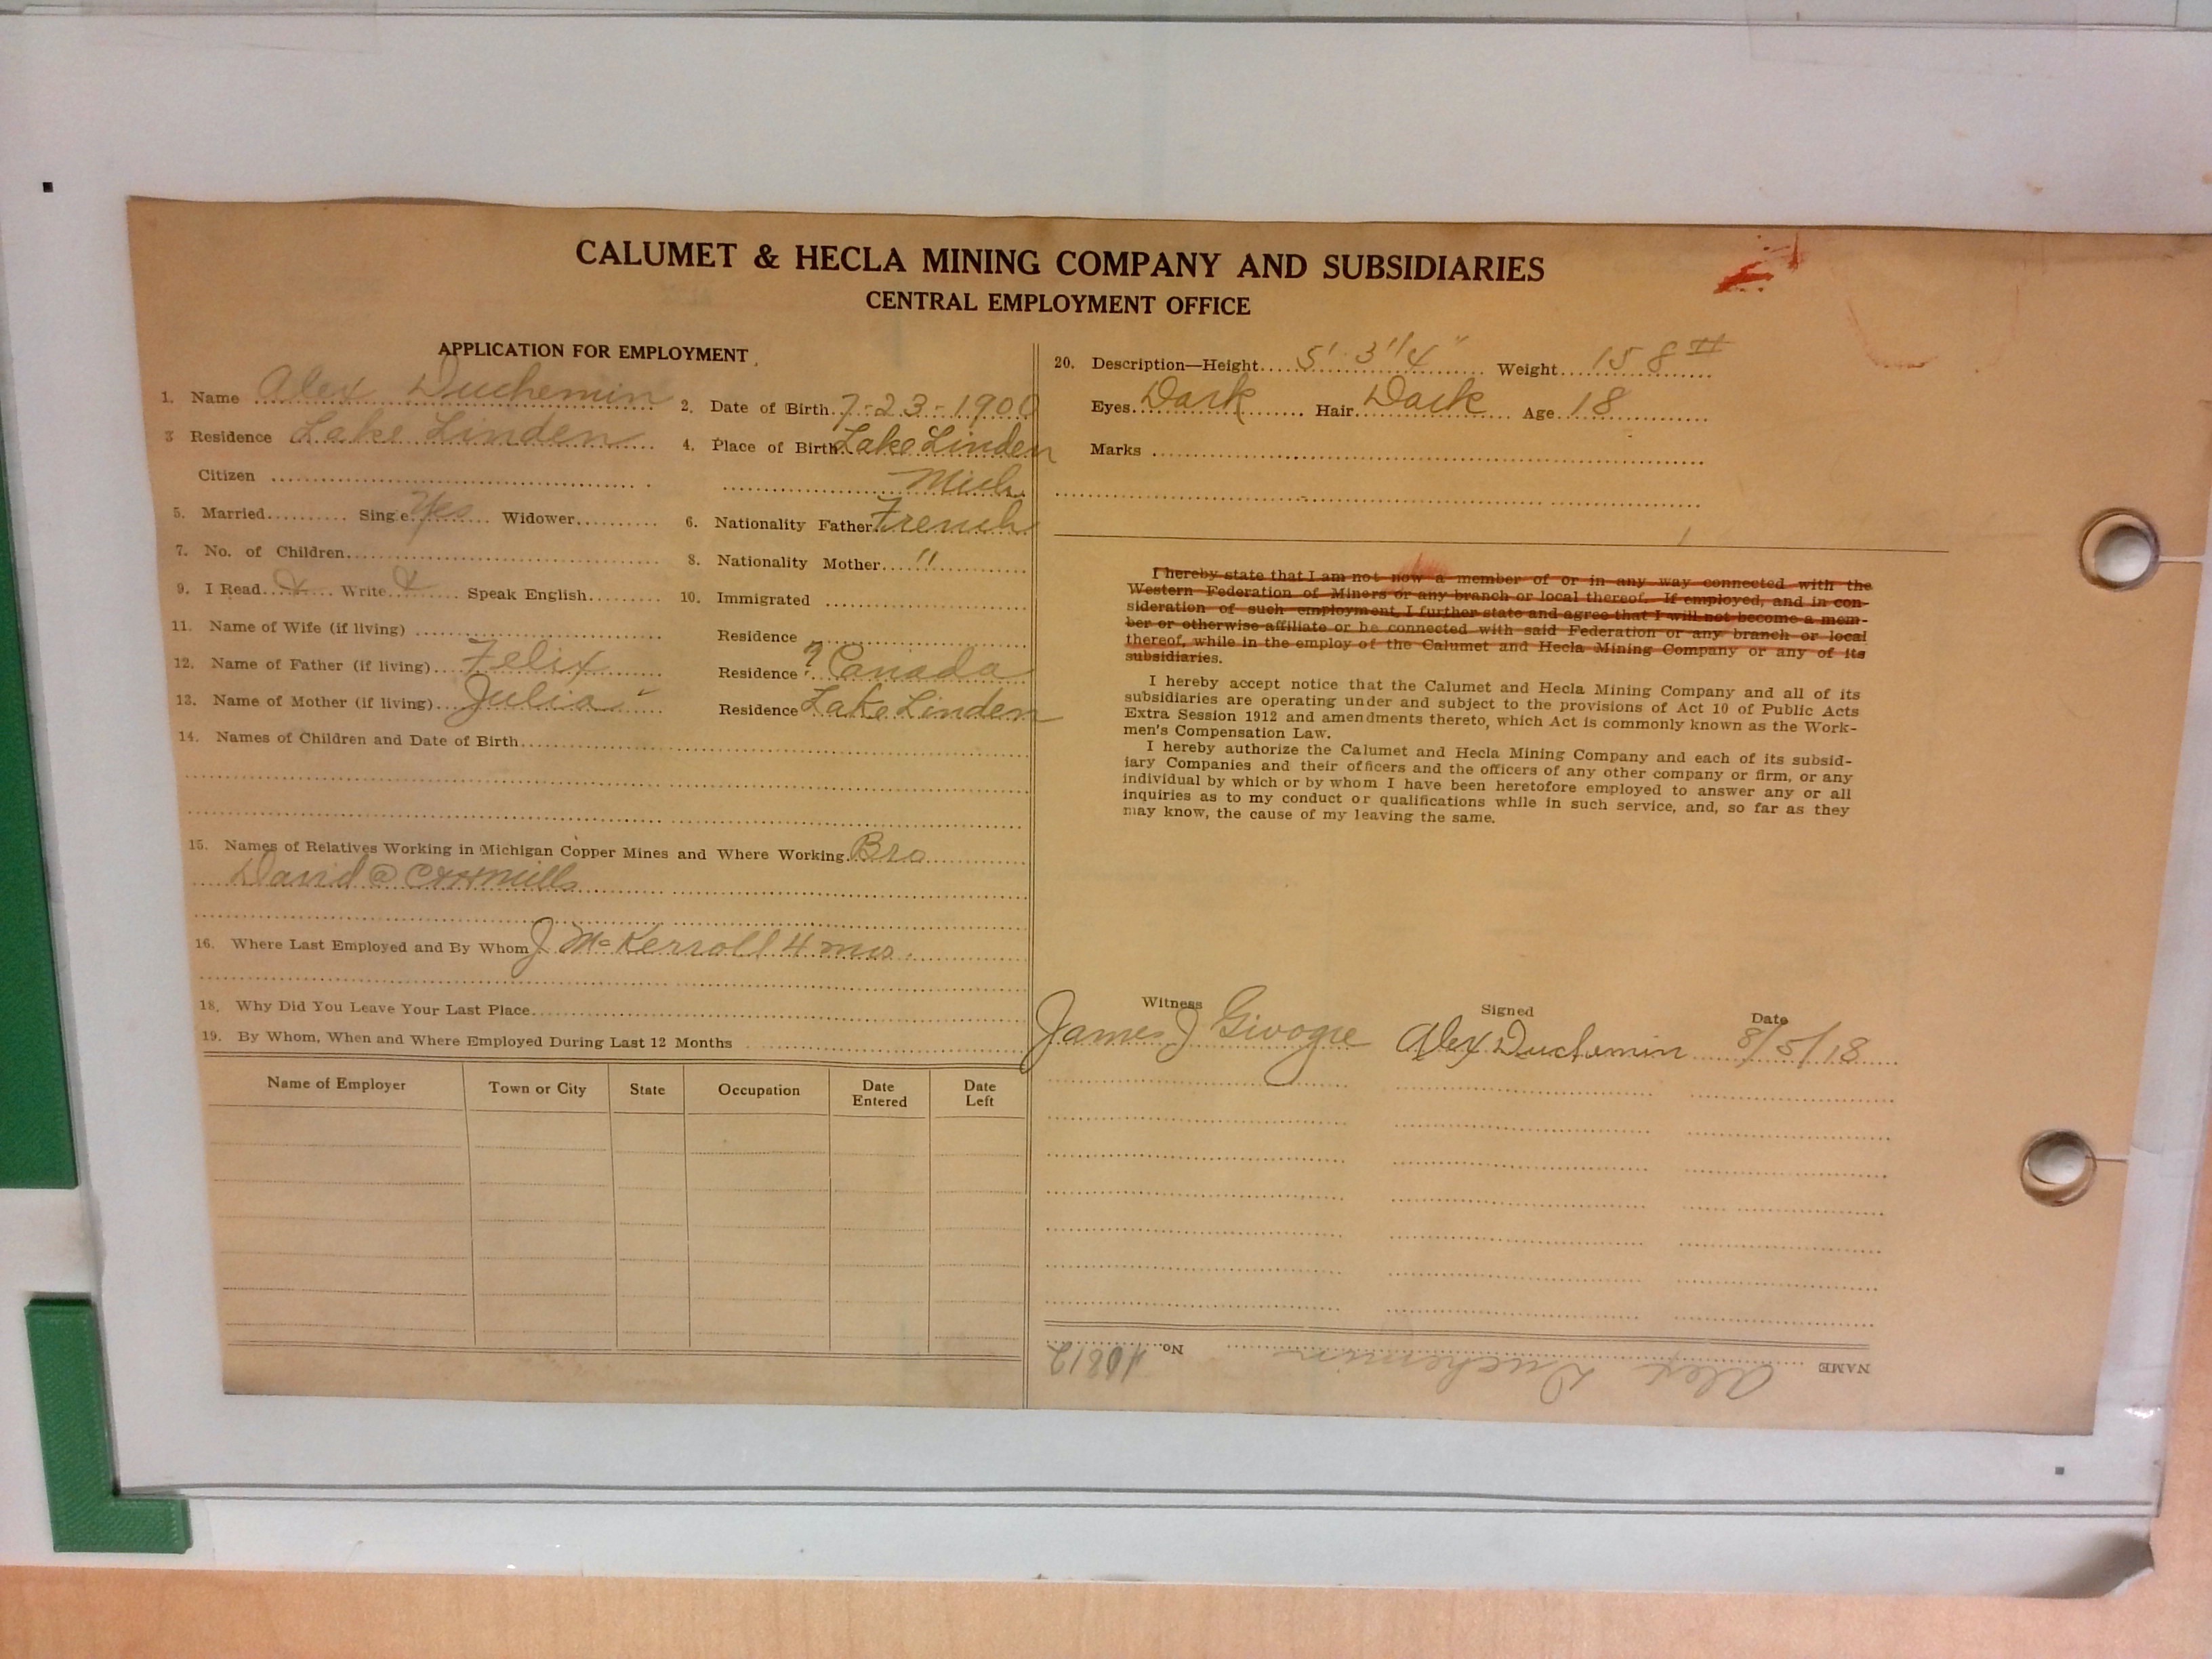 CALUMET & HECLA MINING COMPANY AND SUBSIDIARIES
CENTRAL EMPLOYMENT OFFICE
APPLICATION FOR EMPLOYMENT
1. Name Alex Duchemin
2. Date of Birth 7-23-1900
3 Residence Lake Linden
4. Place of Birth Lake Linden
Citizen
Mich.
5. Married Single Yes Widower
6. Nationality Father French
7. No. of Children
8. Nationality Mother "
9. I Read Write Speak English
10. Immigrated
11. Name of Wife (if living)
Residence
12. Name of Father (if living) Felix
Residence ? Canada
13. Name of Mother (if living) Julia
Residence Lake Linden
14. Names of Children and Date of Birth
15. Names of Relatives Working in Michigan Copper Mines and Where Working. Bro
David @ C&H Mills
16. Where Last Employed and By Whom J McKerroll 4 mos.
18. Why Did You Leave Your Last Place
19. By Whom, When and Where Employed During Last 12 Months
Name of Employer Town or City State Occupation Date Entered Date Left
20. Description—Height 5' 3 1/4" Weight 158 #
Eyes Dark Hair Dark Age 18
Marks
I hereby state that I am not now a member of or in any way connected with the
Western Federation of Miners or any branch or local thereof. If employed, and in con-
sideration of such employment, I further state and agree that I will not become a mem-
ber or otherwise affiliate or be connected with said Federation or any branch or local
thereof, while in the employ of the Calumet and Hecla Mining Company or any of its
subsidiaries.
I hereby accept notice that the Calumet and Hecla Mining Company and all of its
subsidiaries are operating under and subject to the provisions of Act 10 of Public Acts
Extra Session 1912 and amendments thereto, which Act is commonly known as the Work-
men's Compensation Law.
I hereby authorize the Calumet and Hecla Mining Company and each of its subsid-
iary Companies and their officers and the officers of any other company or firm, or any
individual by which or by whom I have been heretofore employed to answer any or all
inquiries as to my conduct or qualifications while in such service, and, so far as they
may know, the cause of my leaving the same.
Witness Signed Date
James J Givogre Alex Duchemin 8/5/18
NAME Alex Duchemin No. 10812